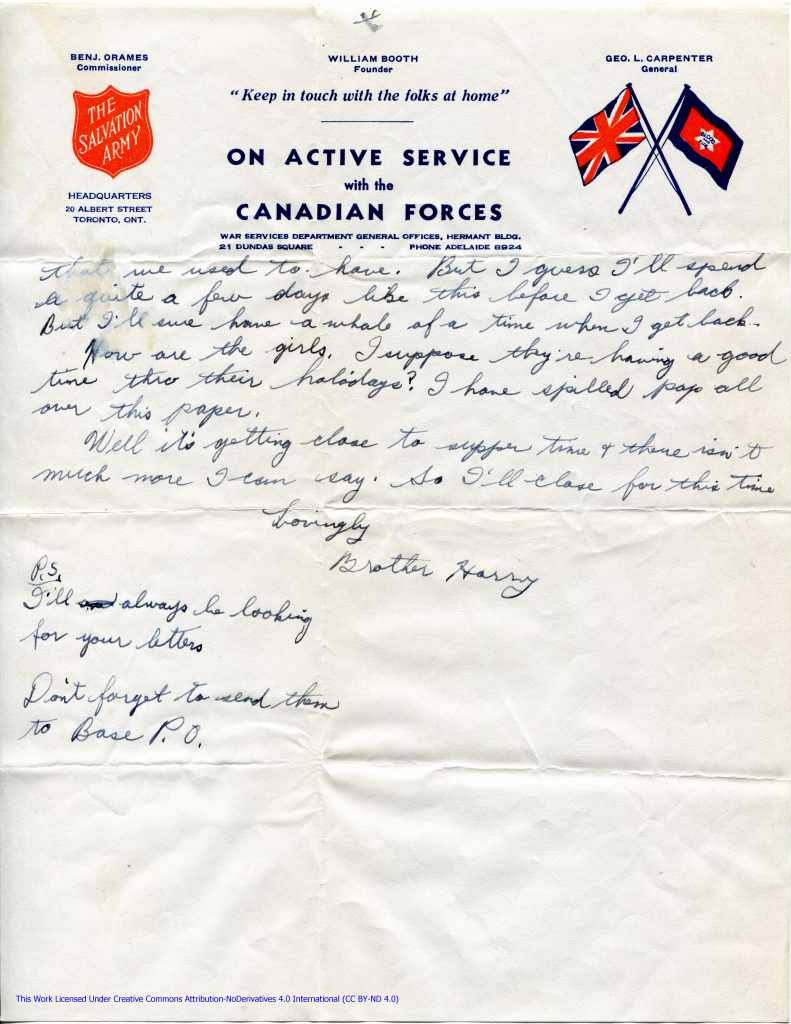 BENJ. ORAMES
Commissioner
WILLIAM BOOTH
Founder
GEO. L. CARPENTER
General
"Keep in touch with the folks at home"
THE
SALVATION
ARMY
BLOOD
AND
FIRE
ON ACTIVE SERVICE
with the
CANADIAN FORCES
HEADQUARTERS
20 ALBERT STREET
TORONTO, ONT.
WAR SERVICES DEPARTMENT GENERAL OFFICES, HERMANT BLDG.
21 DUNDAS SQUARE - - - PHONE ADELAIDE 8924
that we used to have. But I guess I'll spend
a quite a few days like this before I get back.
But I'll sure have a whale of a time when I get back.
How are the girls. I suppose they're having a good
time thro their holidays? I have spilled pop all
over this paper.
Well it's getting close to supper time & there isn't
much more I can say. So I'll close for this time
Lovingly
Brother Harry
P.S.
I'll always be looking
for your letters
Don't forget to send them
to Base P.O.
This Work Licensed Under Creative Commons Attribution-NoDerivatives 4.0 International (CC BY-ND 4.0)